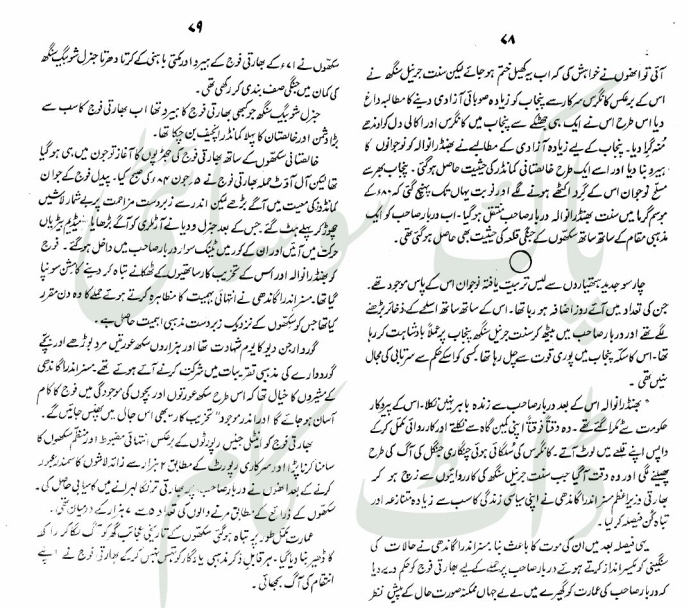 ۷۸
آئی تو انھوں نے خواہش کی کہ اب یہ کھیل ختم ہو جائے لیکن سنت جرنیل سنگھ نے
اس کے برعکس کانگرس سرکار سے پنجاب کو زیادہ صوبائی آزادی دینے کا مطالبہ داغ
دیا اس طرح اس نے ایک ہی جھٹکے سے پنجاب میں کانگرس اور اکالی دل کو اوندھے
منہ گرا دیا۔ پنجاب کے لیے زیادہ آزادی کے مطالبے نے بھنڈرانوالہ کو نوجوانوں کا
ہیرو بنا دیا اور اسے ایک طرح خالصتانی کمانڈر کی حیثیت حاصل ہو گئی۔ پنجاب بھر سے
مسلح نوجوان اس کے گرد اکٹھے ہونے لگے اور نوبت یہاں تک پہنچ گئی کہ ۸۰ء کے
موسم گرما میں سنت بھنڈرانوالہ دربار صاحب منتقل ہو گیا۔ اب دربار صاحب کو ایک
مذہبی مقام کے ساتھ ساتھ سکھوں کے جنگی قلعہ کی حیثیت بھی حاصل ہو گئی تھی۔
چار سو جدید ہتھیاروں سے لیس تربیت یافتہ نوجوان اس کے پاس موجود تھے۔
جن کی تعداد میں آئے روز اضافہ ہو رہا تھا۔ اس کے ساتھ ساتھ اسلحے کے ذخائر بڑھنے
لگے تھے اور دربار صاحب میں بیٹھ کر سنت جرنیل سنگھ پنجاب پر عملاً بادشاہت کر رہا
تھا۔ اس کا سکہ پنجاب میں پوری قوت سے چل رہا تھا کسی کو اسکے حکم سے سرتابی کی مجال
نہیں تھی۔
بھنڈرانوالہ اس کے بعد دربار صاحب سے زندہ باہر نہیں نکلا۔ اس کے پیروکار
حکومت سے ٹکرا گئے تھے۔ وہ وقتاً فوقتاً اپنی کمین گاہ سے نکلتے اور کارروائی مکمل کر کے
واپس اپنے قلعے میں لوٹ آتے۔ کانگرس کی سلگائی ہوئی چنگاری جنگل کی آگ کی طرح
پھیلنے لگی اور وہ وقت آ گیا جب سنت جرنیل سنگھ کی کارروائیوں سے زچ ہو کر
بھارتی وزیر اعظم مسز اندرا گاندھی نے اپنی سیاسی زندگی کا سب سے زیادہ متنازعہ اور
تباہ کن فیصلہ کر لیا۔
یہی فیصلہ بعد میں ان کی موت کا باعث بنا۔ مسز اندرا گاندھی نے حالات کی
سنگینی کو یکسر نظر انداز کرتے ہوئے دربار صاحب پر حملے کے لیے بھارتی فوج کو حکم دے دیا
کہ دربار صاحب کی عمارت کو گھیرے میں لے لے جہاں ممکنہ صورت حال کے پیش نظر
۷۹
سکھوں نے ۷۱ء کے بھارتی فوج کے ہیرو اور مکتی باہنی کے کرتا دھرتا جنرل شوبیگ سنگھ
کی کمان میں جنگی صف بندی کر رکھی تھی۔
جنرل شوبیگ سنگھ جو کبھی بھارتی فوج کا ہیرو تھا اب بھارتی فوج کا سب سے
بڑا دشمن اور خالصتان کا پہلا کمانڈر انچیف بن چکا تھا۔
خالصتانی سکھوں کے ساتھ بھارتی فوج کی جھڑپوں کا آغاز تو جون میں ہی ہو گیا
تھا لیکن آل آؤٹ حملہ بھارتی فوج نے ۵ جون ۸۴ء کی صبح کیا۔ پیدل فوج کے جوان
کمانڈوز کی معیت میں آگے بڑھے لیکن اندر سے زبردست مزاحمت پر بے شمار لاشیں
چھوڑ کر پسپے ہٹ گئے جس کے بعد جنرل ودیا نے آرٹلری کو آگے بڑھایا
حرکت میں آئیں اور ان کے کور میں ٹینک سوار دربار صاحب میں داخل ہو گئے۔ فوج
کو بھنڈرانوالہ اور اس کے تخریب کار ساتھیوں کے ٹھکانے تباہ کر دینے کا مشن سونپا
گیا تھا۔ مسز اندرا گاندھی نے انتہائی بہیمیت کا مظاہرہ کرتے ہوئے حملے کا وہ دن مقرر
کیا تھا جس کو سکھوں کے نزدیک زبردست مذہبی اہمیت حاصل ہے۔
گورو ارجن دیو کا یوم شہادت تھا اور ہزاروں سکھ عورتیں مرد بوڑھے اور بچے
گوردوارے کی مذہبی تقریبات میں شرکت کرنے آئے ہوئے تھے۔ مسز اندرا گاندھی
کے مشیروں کا خیال تھا کہ اس طرح سکھ عورتوں اور بچوں کی موجودگی میں فوج کا کام
آسان ہو جائے گا اور اندر موجود "تخریب کار" بھی اس جال میں پھنس جائیں گے۔
بھارتی فوج کو انٹیلی جینس رپورٹوں کے برعکس انتہائی مضبوط اور منظم سکھوں کا
سامنا کرنا پڑا اور سرکاری رپورٹ کے مطابق ۲ ہزار سے زائد لاشوں کا سمندر عبور
کرنے کے بعد انھوں نے دربار صاحب پر بھارتی ترنگا لہرانے میں کامیابی حاصل کی۔
سکھوں کے ذرائع کے مطابق مرنے والوں کی تعداد ۵ سے ۷ ہزار کے درمیان تھی۔
عمارت مکمل طور پر تباہ ہو گئی سکھوں کے تاریخی عجائب گھر کو آگ لگا کر راکھ
کا ڈھیر بنا دیا گیا۔ ہر قابل ذکر مذہبی یادگار کو تہس نہس کر کے بھارتی فوج نے اپنے
انتقام کی آگ بجھائی۔
پاک سوسائٹی
ڈاٹ کام